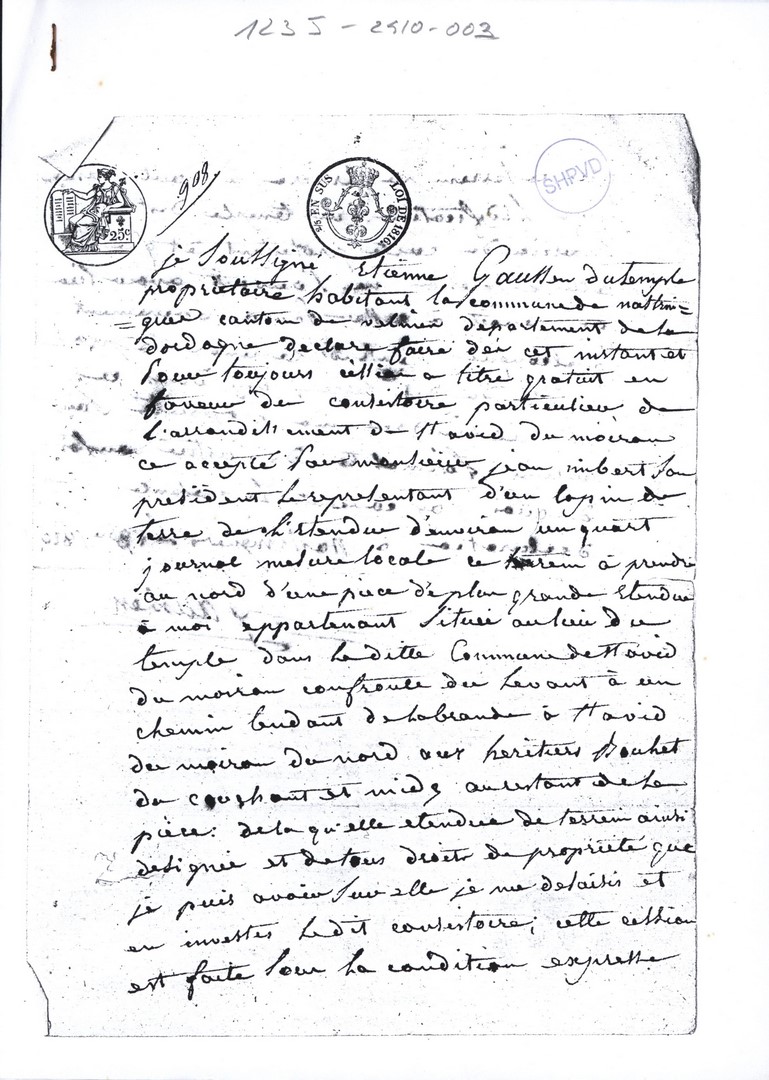 123 J - 2910-003
908
25c
EN SUS
LOI DE 1816
SHPVD
je Soussigné Etienne Gaussen dutemple
propriétaire habitant la commune de nastrin=
=gues canton de velines département de la
dordogne declare faire dès cet instant et
pour toujours cession a titre gratuit en
faveur du consistoire particulier de
l'arrondissement de St avid du moiron
ce accepté par monsieur jean imbert son
president le représentant d'un lopin de
terre de l'étendue d'environ un quart
journal mesure locale ce terrein à prendre
au nord d'une pièce de plus grande Etendue
à moi appartenant Située au lieu du
temple dans laditte Commune de St avid
du moiron confronte du Levant à un
chemin tendant de labrande à St avid
du moiron du nord aux heritiers Pouhet
du couchant et midy au restant de la
pièce: de la qu'elle etendue de terrein ainsi
designée et detous droits de propriété que
je puis avoir sur elle je me desaisis et
en investis ledit consistoire; cette cession
est faite sous la condition expresse